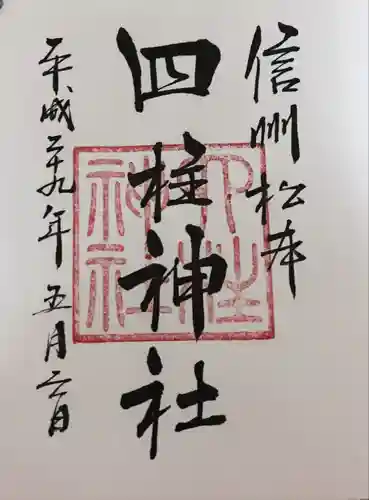 信州松本
四柱神社
平成二十九年五月二日
四柱神社